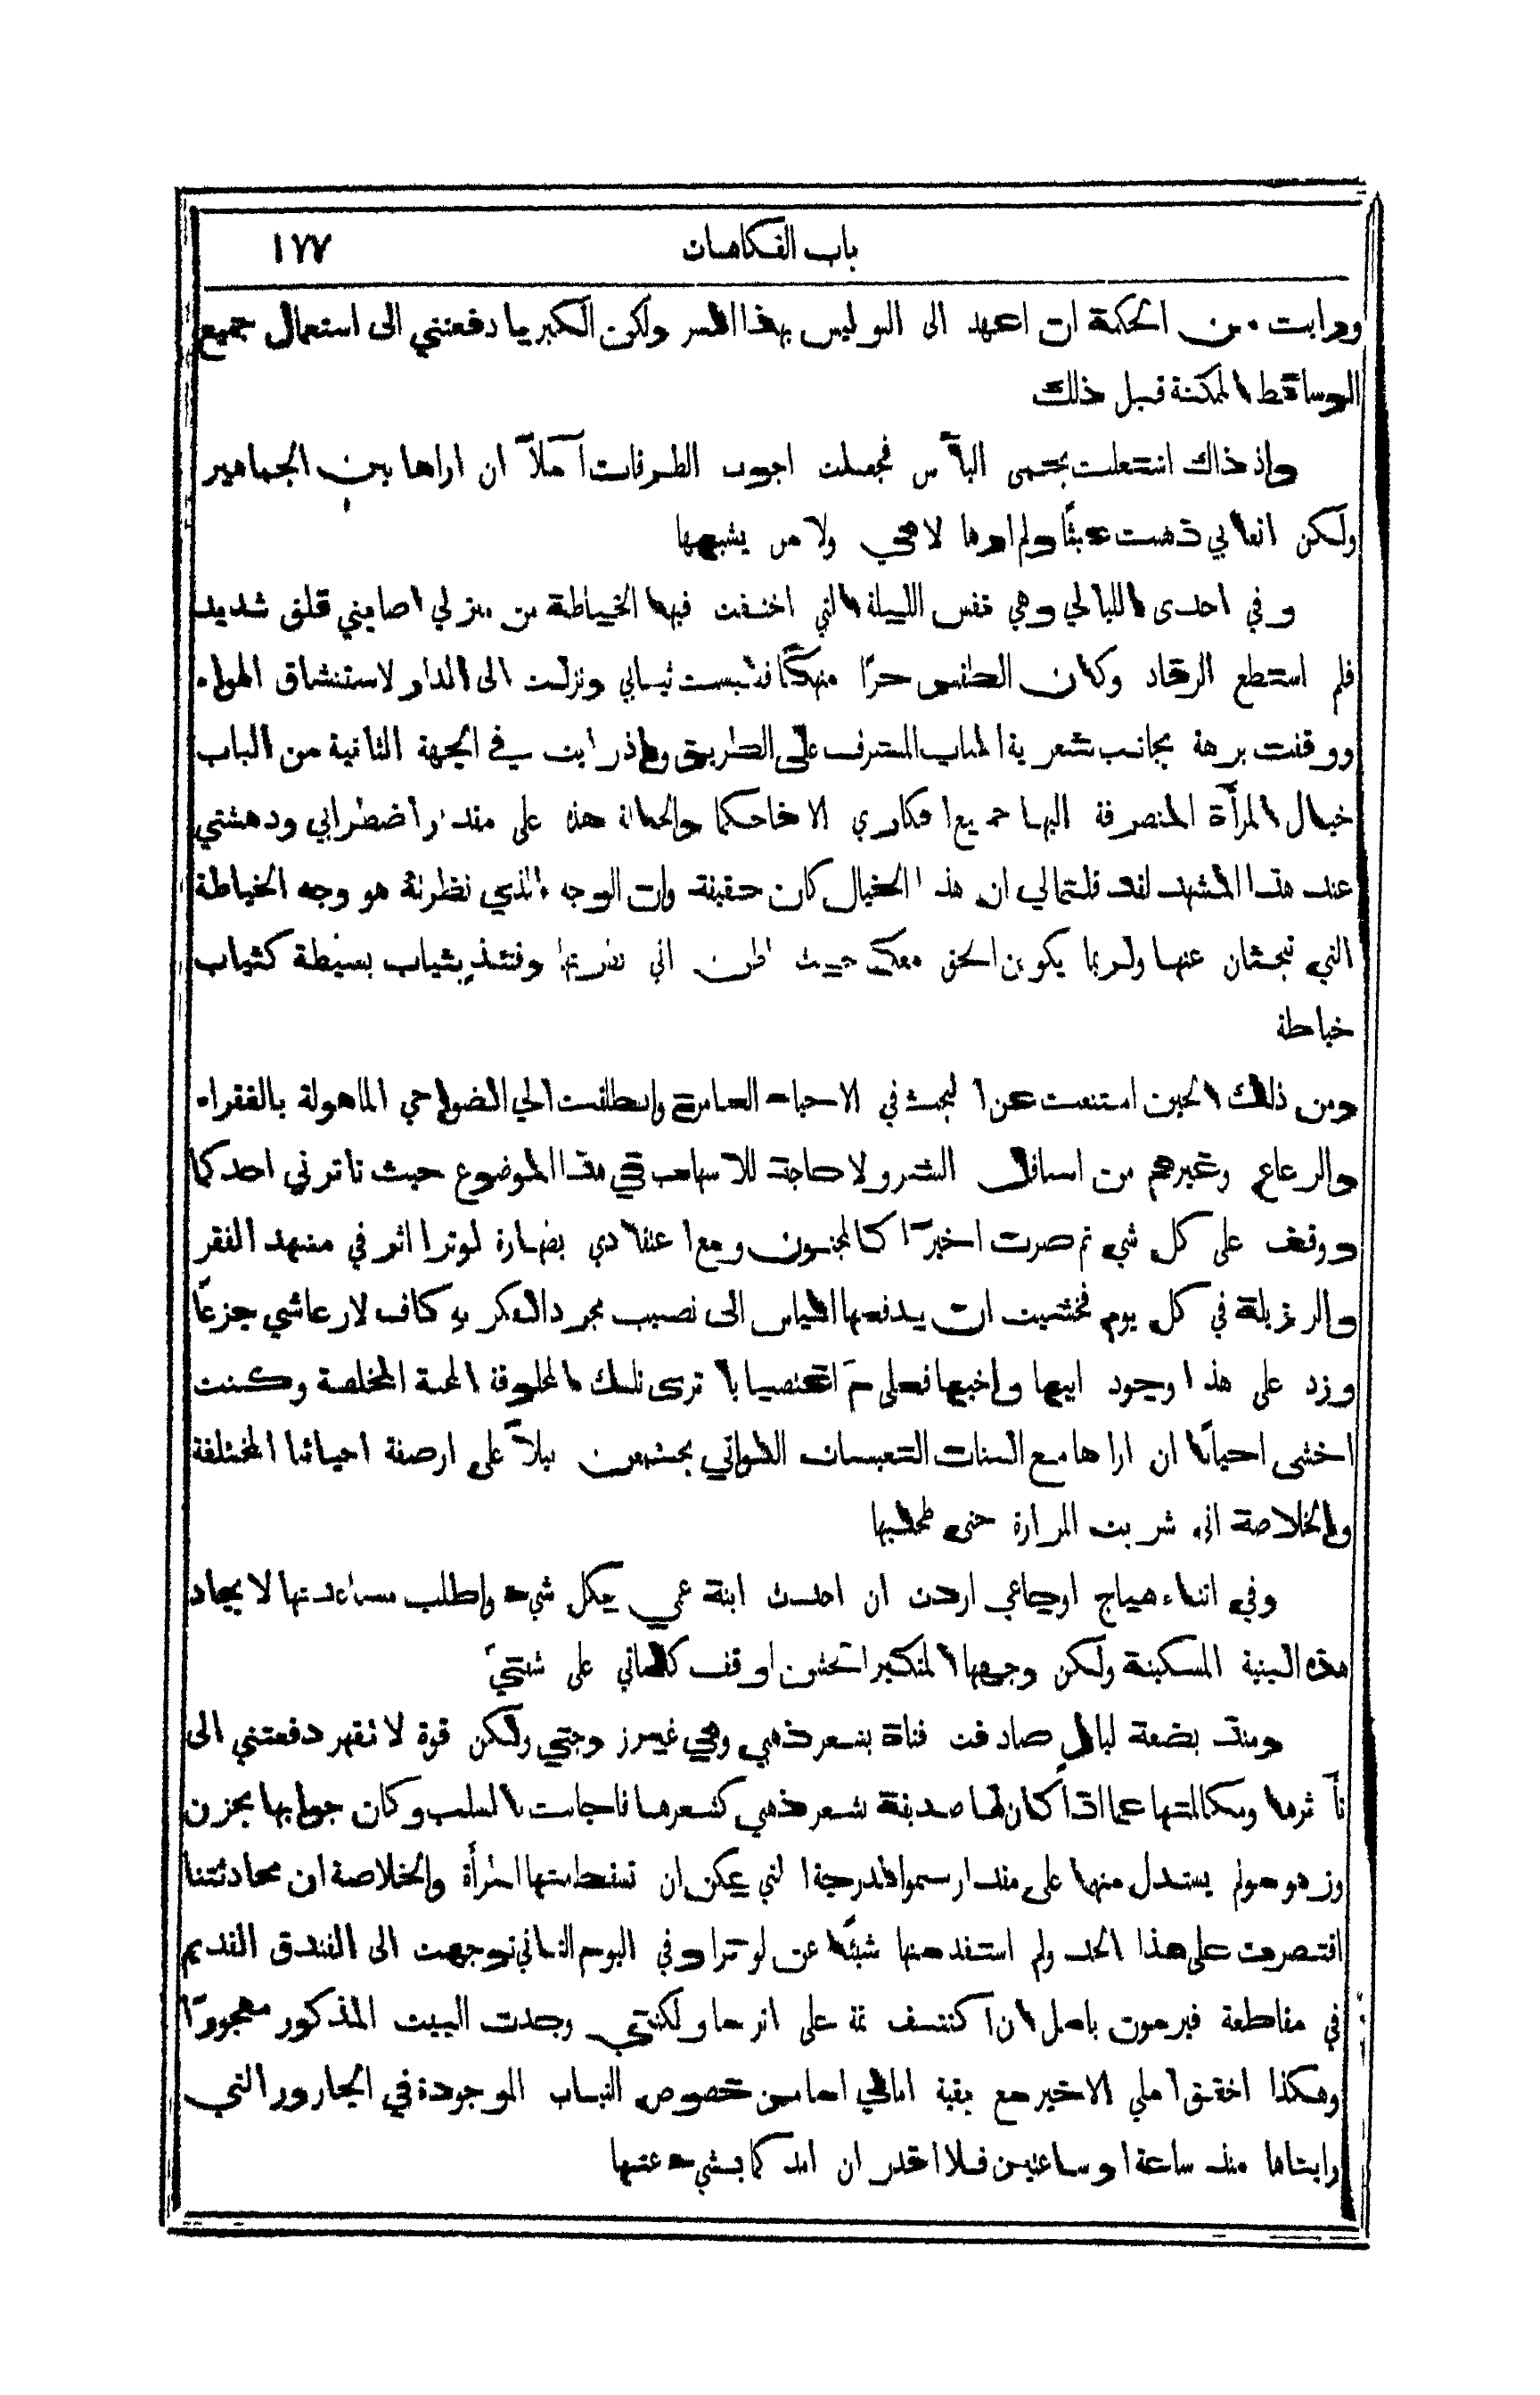 باب الفكاهات ١٧٧
ورايت من الحكمة ان اعهد الى البوليس بهذا السر ولكن الكبريا دفعتني الى استعمال جميع
الوسائط الممكنة قبل ذلك
واذ ذاك اشتعلت بحمى اليأس فجعلت اجوب الطرقات آملاً ان اراها بين الجماهير
ولكن اتعابي ذهبت عبثًا ولم ارها لا هي ولا من يشبهها
وفي احدى الليالي وهي نفس الليلة التي اختفت فيها الخياطة من منزلي اصابني قلق شديد
فلم استطع الرقاد وكان الطقس حرًا منهكًا فلبست ثيابي ونزلت الى الدار لاستنشاق الهواء
ووقفت برهة بجانب شعرية الباب المشرف على الطريق واذ رايت في الجهة الثانية من الباب
خيال المرأة المنصرفة اليها جميع افكاري الا فاحكما والحالة هذه على مقدار اضطرابي ودهشتي
عند هذا المشهد لقد قلتما لي ان هذا الخيال كان حقيقة وان الوجه الذي نظرته هو وجه الخياطة
التي تبحثان عنها ولربما يكون الحق معكما حيث اظن اني نظرتها وقتئذٍ بثياب بسيطة كثياب
خياطة
ومن ذلك الحين امتنعت عن البحث في الاحياء العامرة وانطلقت الى الضواحي الماهولة بالفقراء
والرعاع وغيرهم من اسافل البشر ولا حاجة للاسهاب في هذا الموضوع حيث ناثرني احدكما
ووقف على كل شيء ثم صرت اخيرًا كالمجنون ومع اعتقادي بطهارة لوترا اثر في مشهد الفقر
والرذيلة في كل يوم فخشيت ان يدفعها الياس الى نصيب مجرد الفكر به كاف لارعاشي جزعًا
وزد على هذا وجود ابيها واخيها فعلى مَ اغتصبا يا ترى تلك المخلوقة المحبة المخلصة وكنت
اخشى احيانًا ان اراها مع البنات التعيسات اللواتي يجتمعن ليلاً على ارصفة احيائنا المختلفة
والخلاصة اني شربت المرارة حتى طحلبها
وفي اثناء هياج اوجاعي اردت ان احدث ابنة عمي بكل شيء واطلب مساعدتها لايجاد
هذه البنية المسكينة ولكن وجهها المتكبر الخشن اوقف كلماتي على شفتيّ
ومنذ بضعة ليالٍ صادفت فتاة بشعر ذهبي وهي غير زوجتي ولكن قوة لا تقهر دفعتني الى
تأثرها ومكالمتها عما اذا كان لها صديقة بشعر ذهبي كشعرها فاجابت بالسلب وكان جوابها بحزن
وزهو ولم يستدل منها على مقدار سمو الدرجة التي يمكن ان تسقط منها المرأة والخلاصة ان محادثتنا
اقتصرت على هذا الحد ولم استفد منها شيئًا عن لوترا وفي اليوم الثاني توجهت الى الفندق القديم
في مقاطعة فيرمون بامل ان اكتشف ثمة على اثرها ولكنني وجدت البيت المذكور مهجورًا
وهكذا اخفق املي الاخير مع بقية امالي اما من خصوص الثياب الموجودة في الجارور التي
رايتاها منذ ساعة او ساعتين فلا اقدر ان افيدكما بشيء عنها